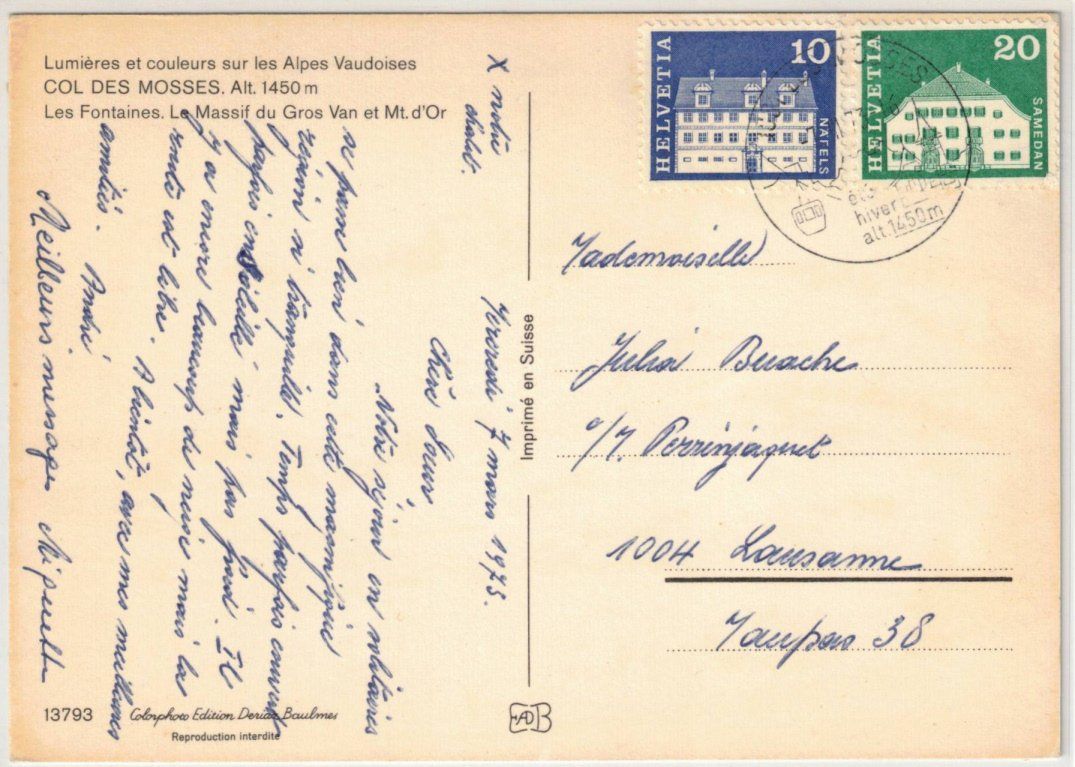 Lumières et couleurs sur les Alpes Vaudoises
COL DES MOSSES. Alt. 1450 m
Les Fontaines. Le Massif du Gros Van et Mt. d'Or
X notre
chalet.
Mercredi 7 mars 1973.
Chère
Notre séjour en solitaires
se passe bien dans cette magnifique
région si tranquille. Temps parfois couvert
parfois ensoleillé mais pas froid. Il
y a encore beaucoup de neige mais la
route est libre. A bientôt, avec mes meilleures
amitiés. André
Meilleurs messages
13793
Colorphoto Edition Deriaz Baulmes
Reproduction interdite
Imprimé en Suisse
HELVETIA 10 NÄFELS
HELVETIA 20 SAMEDAN
été
hiver
alt. 1450m
Mademoiselle
Julia Buache
c/ Perrinjaquet
1004 Lausanne
Maupas 38